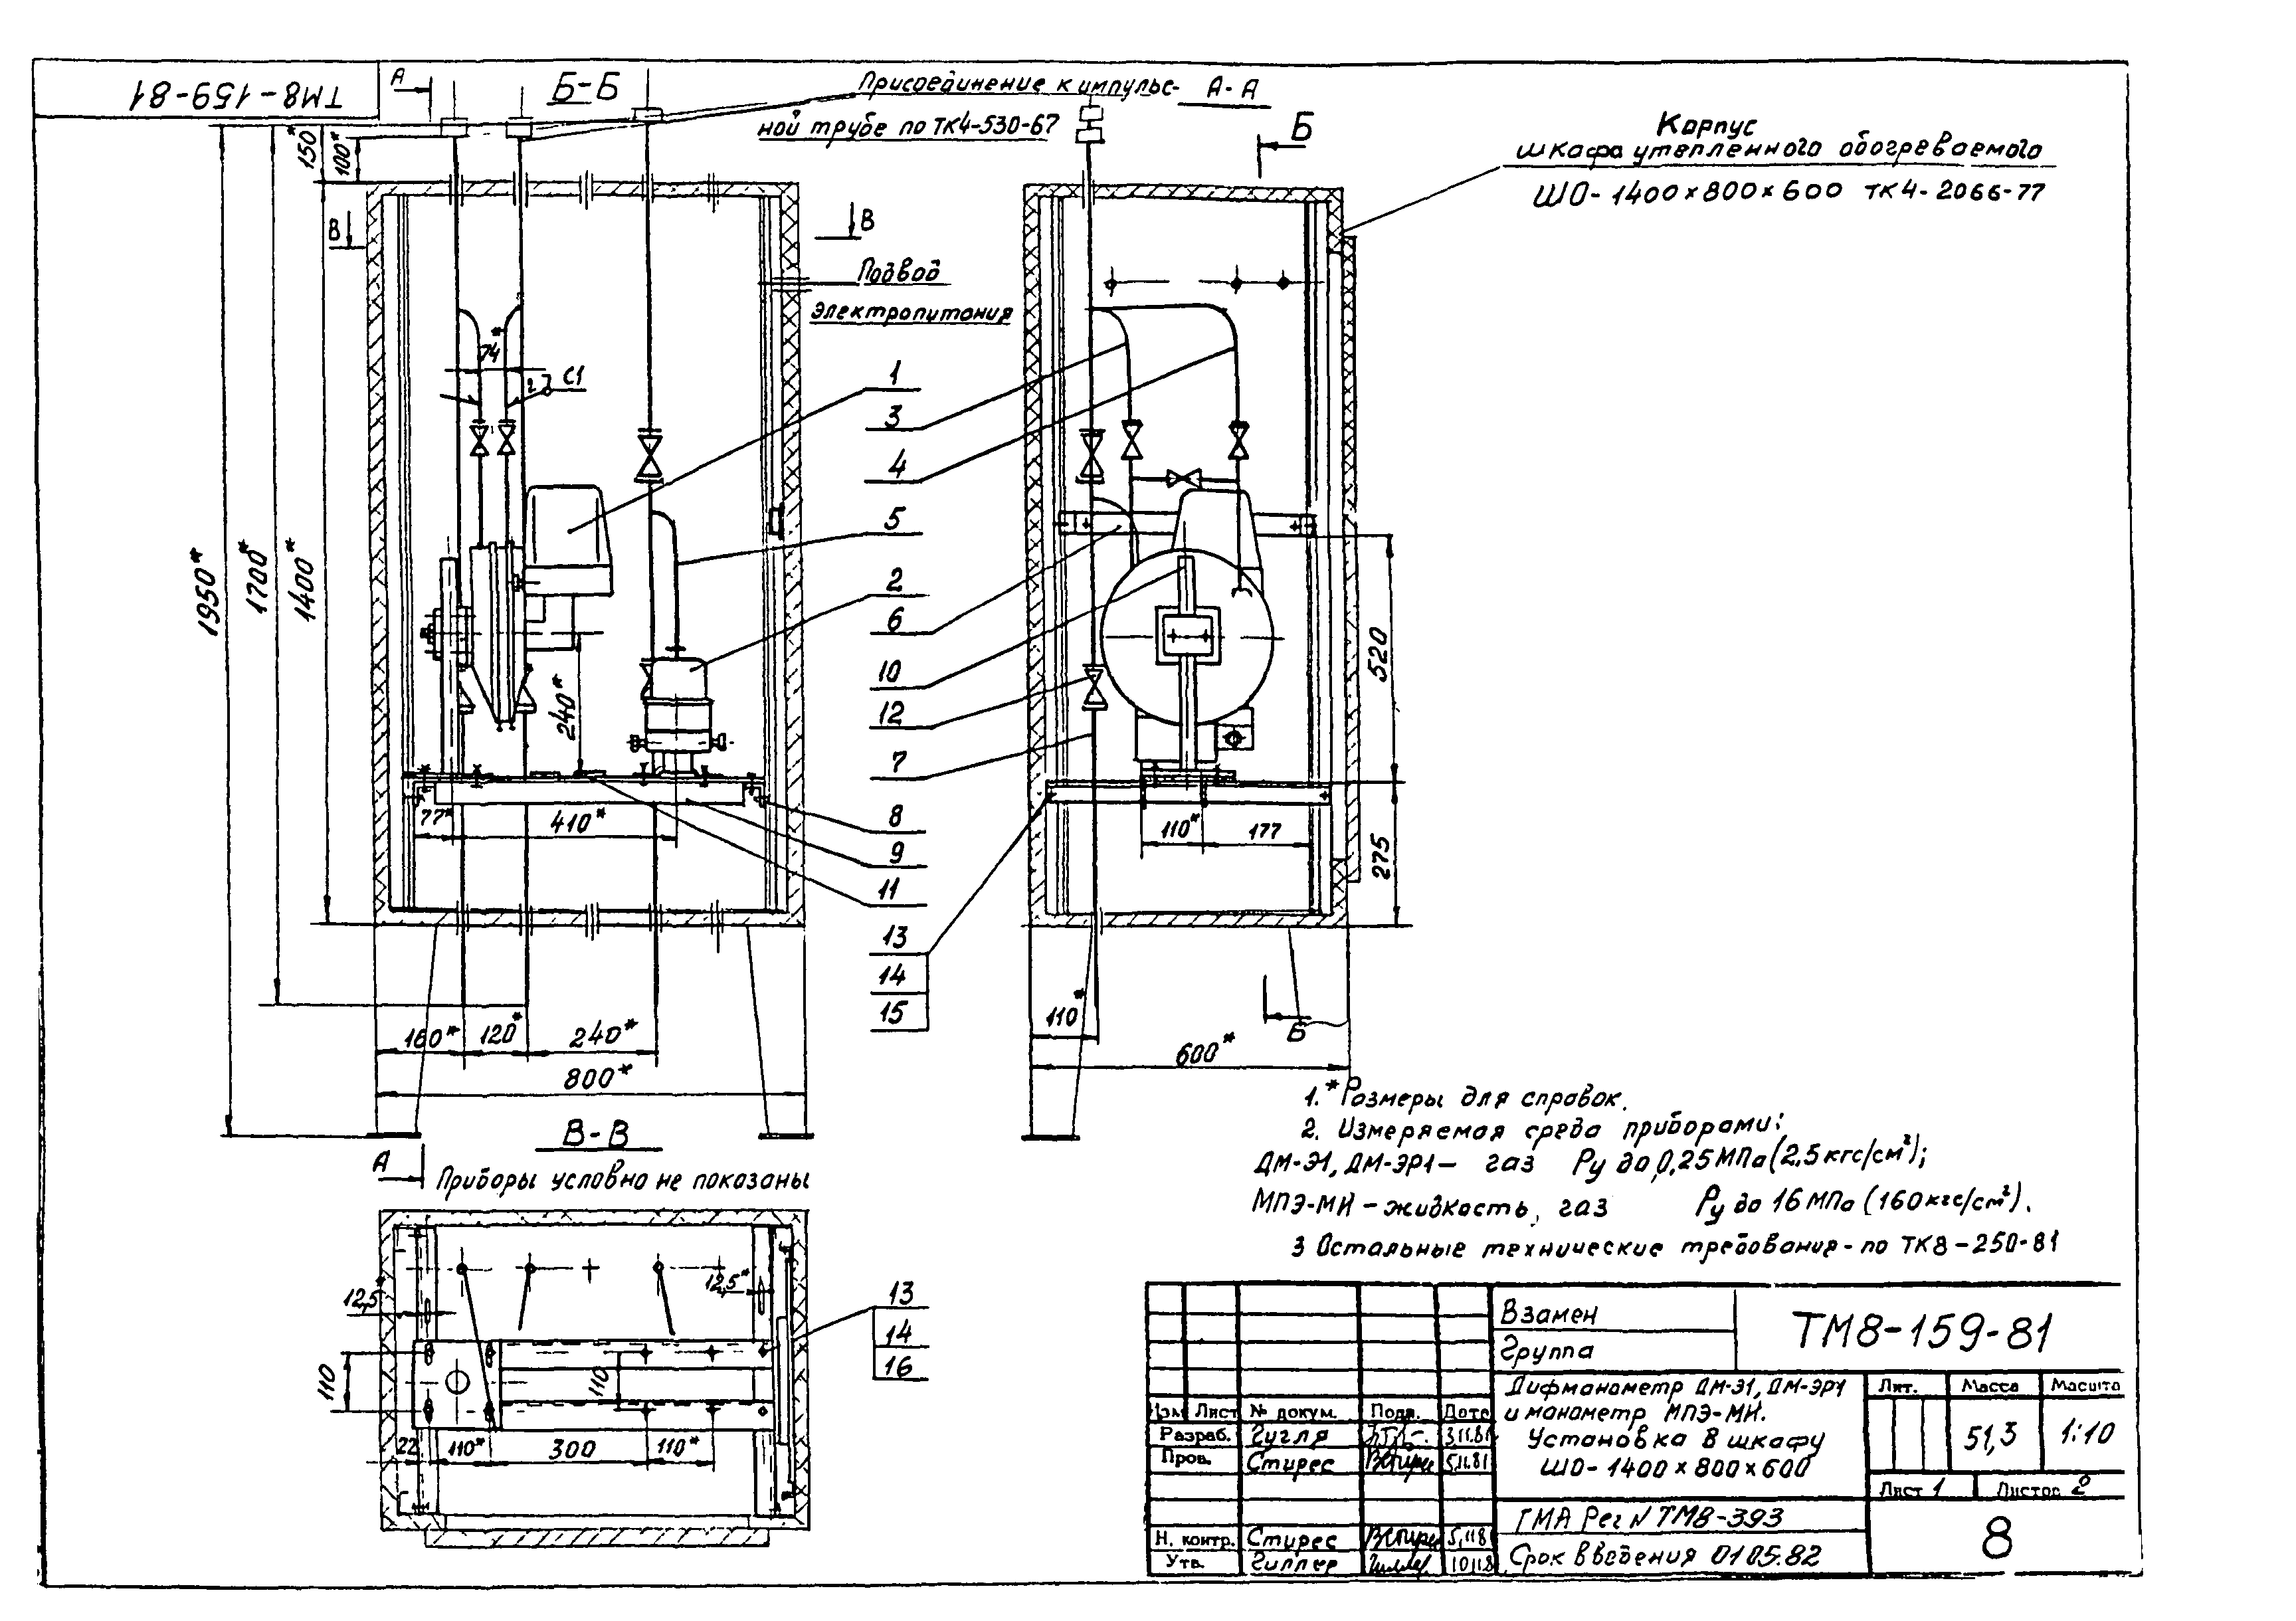 ТМ8-159-81
А
Б-Б
Присоединение к импульс-
ной трубе по ТК4-530-67
А-А
Б
Корпус
шкафа утепленного обогреваемого
ШО-1400×800×600 ТК4-2066-77
150*
100*
В
В
Подвод
электропитания
74*
С1
1
3
4
5
2
6
10
12
7
8
9
11
13
14
15
1950*
1700*
1400*
240*
77*
410*
520
275
110*
177
160*
120*
240*
800*
110*
600*
Б
А
В-В
Приборы условно не показаны
12,5*
12,5*
110
110
22
110*
300
110*
13
14
16
1.* Размеры для справок.
2. Измеряемая среда приборами:
ДМ-Э1, ДМ-ЭР1 — газ Ру до 0,25 МПа (2,5 кгс/см²);
МПЭ-МИ — жидкость, газ Ру до 16 МПа (160 кгс/см²).
3 Остальные технические требования - по ТК8-250-81
Взамен
Группа
ТМ8-159-81
Дифманометр ДМ-Э1, ДМ-ЭР1
и манометр МПЭ-МИ.
Установка в шкафу
ШО-1400×800×600
Лит. Масса Масштаб
51,3 1:10
Лист 1 Листов 2
Изм Лист № докум. Подп. Дата
Разраб. Гугля 3.11.81
Пров. Стирес 5.11.81
Н. контр. Стирес 5.11.81
Утв. Гиллер
ГМА Рег N ТМ8-393
Срок введения 01.05.82
8